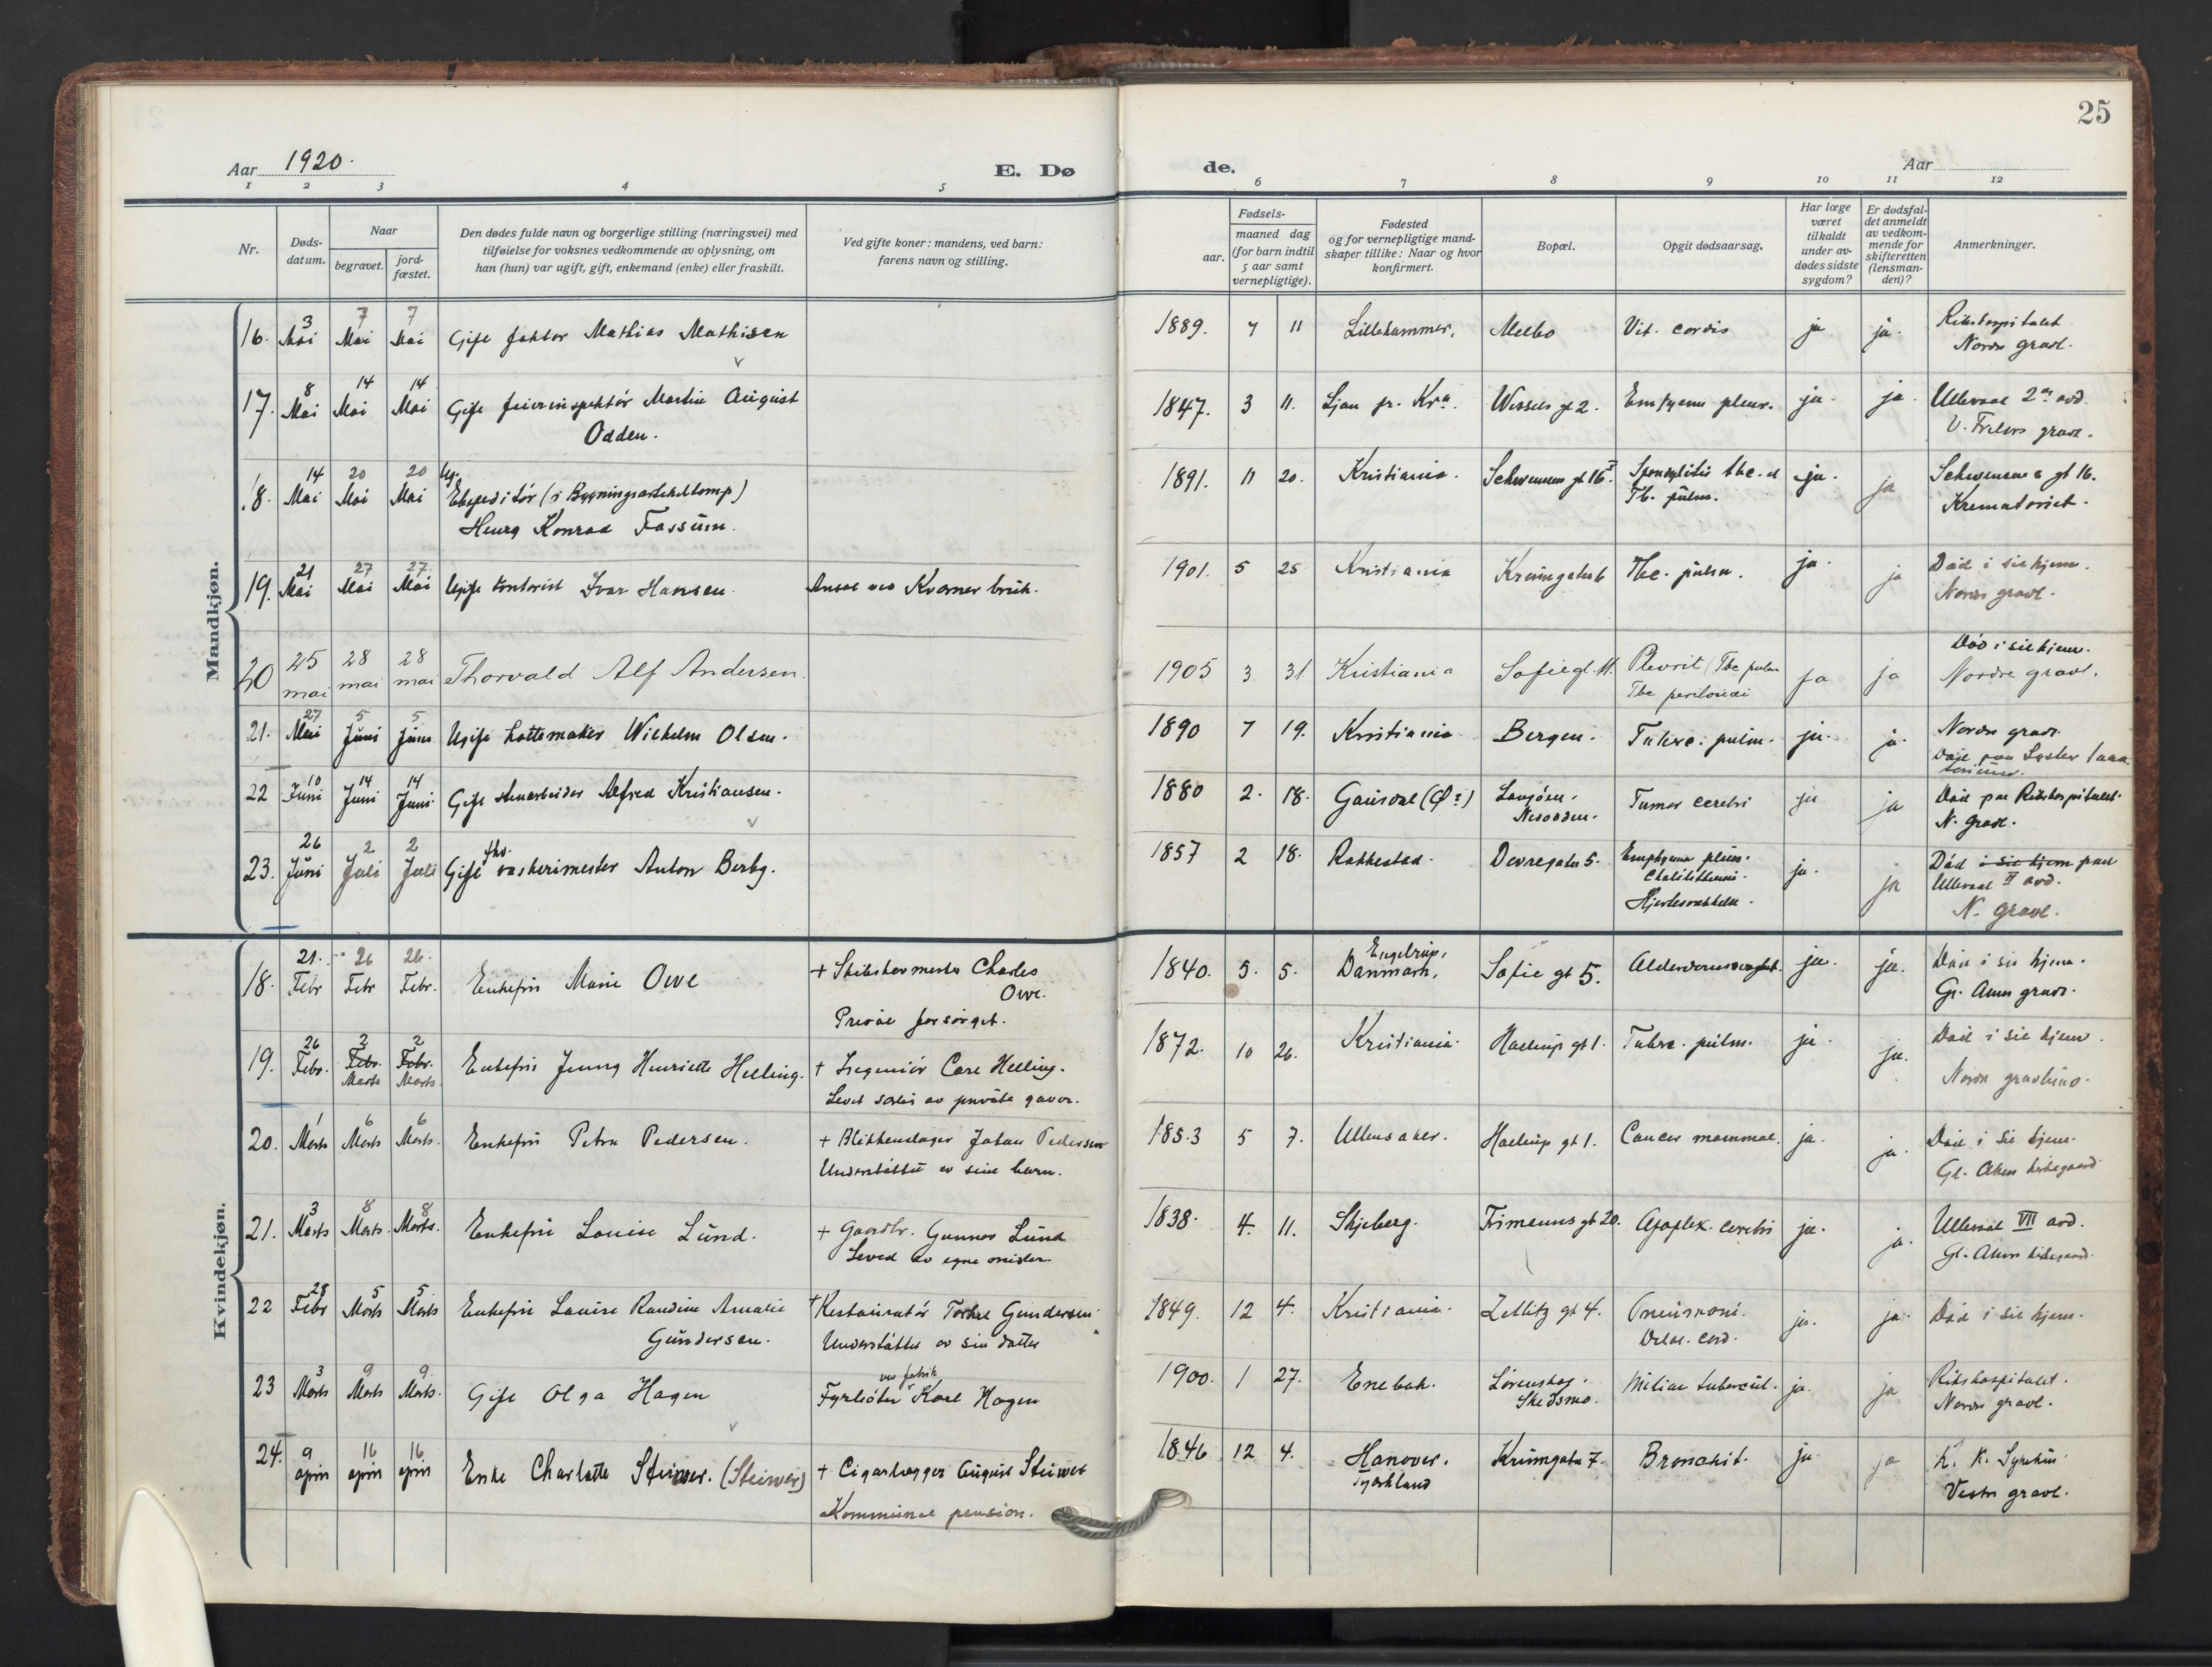 25
Aar 1920.
E. Dø
de.
Aar
1 2 3 4 5
6 7 8 9 10 11 12
Nr.
Døds-
datum.
Naar
begravet.
jord-
fæstet.
Den dødes fulde navn og borgerlige stilling (næringsvei) med
tilføielse for voksnes vedkommende av oplysning, om
han (hun) var ugift, gift, enkemand (enke) eller fraskilt.
Ved gifte koner: mandens, ved barn:
farens navn og stilling.
Fødsels-
aar.
maaned dag
(for barn indtil
5 aar samt
vernepligtige).
Fødested
og for vernepligtige mand-
skaper tillike: Naar og hvor
konfirmert.
Bopæl.
Opgit dødsaarsag.
Har læge
været
tilkaldt
under av-
dødes sidste
sygdom?
Er dødsfal-
det anmeldt
av vedkom-
mende for
skifteretten
(lensman-
den)?
Anmerkninger.
Mandkjøn.
16. 3 Mai 7 Mai 7 Mai Gift faktor Mathias Mathisen 1889. 7 11 Lillehammer. Melbo Vit. cordis ja ja. Rikshospitalet
Nordre gravl.
17. 8 Mai 14 Mai 14 Mai Gift feierinspektör Martin August 1847. 3 11. Ljan pr. Kra. Wessels gt 2. Empyema pleur. ja. ja. Ullevaal 2en avd.
Odden. V. Frelsers gravl.
18. 14 Mai 20 Mai 20 Mai Ug.
Ekspeditör (i Bygningsartikelkomp) 1891. 11 20. Kristiania. Schwensens gt 16 I Spondylitis tbc. et ja. ja Schwensens gt 16.
Henry Konrad Fossum. Tb. pulm. Krematoriet.
19. 21 Mai 27 Mai 27 Mai Ugift kontorist Ivar Hansen. Ansat ved Kværner bruk. 1901. 5 25 Kristiania Krumgaten 6 Tbc. pulm. ja. ja Död i sit hjem.
Nordre gravl.
20 25 mai 28 mai 28 mai Thorvald Alf Andersen. 1905 3 31 Kristiania Sofiegt. 11. Plevrit (Tbc pulm ja ja Död i sit hjem.
Tbc peritonei Nordre gravl.
21. 27 Mai 5 Juni 5 Juni Ugift hattemaker Wilhelm Olsen. 1890 7 19. Kristiania Bergen. Tuberc. pulm. ja. ja. Nordre gravl.
Död paa Lyster sana-
torium.
22 10 Juni 14 Juni 14 Juni Gift stenarbeider Alfred Kristiansen. 1880 2. 18. Gausdal (Ø?) Nesodden. Tumor cerebri ja ja Död paa Rikshospitalet.
N. Gravl.
23. 26 Juni 2 Juli 2 Juli fhv.
Gift vaskerimester Anton Berby. 1857 2 18. Rakkestad. Dovregaten 5. Empyema pleur. ja. ja Död i sit hjem paa
Ullevaal II avd.
Hjertesvakhet. N. gravl.
Kvindekjøn.
18. 21. Febr 26 Febr 26. Febr. Enkefru Marie Owe + Charles 1840. 5. 5. Engelrup, Danmark. Sofie gt 5. Alderdomssvaghet. ja. ja. Död i sit hjem.
Owe. Gl. Akers gravl.
Privat forsörget.
19. 26 Febr. 2 Febr. Marts 2 Febr. Marts Enkefru Jenny Henriette Helling. + Ingeniör Carl Helling. 1872. 10 26. Kristiania. Haelrups gt 1. Tuberc. pulm. ja. ja. Död i sit hjem.
Levet av private gaver. Nordre gravlund.
20. 1 Marts 6 Marts 6 Marts. Enkefru Petra Pedersen. + Blikkenslager Johan Pedersen 1853 5 7. Ullensaker. Haelrups gt 1. Cancer mammae. ja. ja. Död i sit hjem.
Understöttet av sine barn. Gl. Akers kirkegaard
21. 3 Marts 8 Marts. 8 Marts. Enkefru Louise Lund. + Gaardbr. Gunnar Lund 1838. 4. 11. Skjeberg. Frimanns gt 20. Apoplex. cerebri ja. ja. Ullevaal VII avd.
Leved av egne midler Gl. Akers kirkegaard.
22 28 Febr 5 Marts 5 Marts Enkefru Lovise Randine Amalie + Restauratör Torkel Gundersen 1849. 12 4. Kristiania. Zetlitz gt 4. Pneumoni. ja. ja. Död i sit hjem.
Gundersen. Understöttet av sin datter Dilat. cord.
23 3 Marts 9 Marts 9. Marts. Gift Olga Hagen ved fabrik
Fyrböter Karl Hagen 1900. 1 27. Enebak. Lörenskog. Skedsmo. Miliær tubercul. ja. ja Rikshospitalet.
Nordre gravl.
24. 9 april 16 april 16 april Enke Charlotte Steinwer. (Steinwer) + Cigarlægger August Steinwer 1846 12 4. Hanover. Tyskland Krumgaten 7. Bronchit. ja ja K. K. Sykehus
Kommunal pension. Vestre gravl.